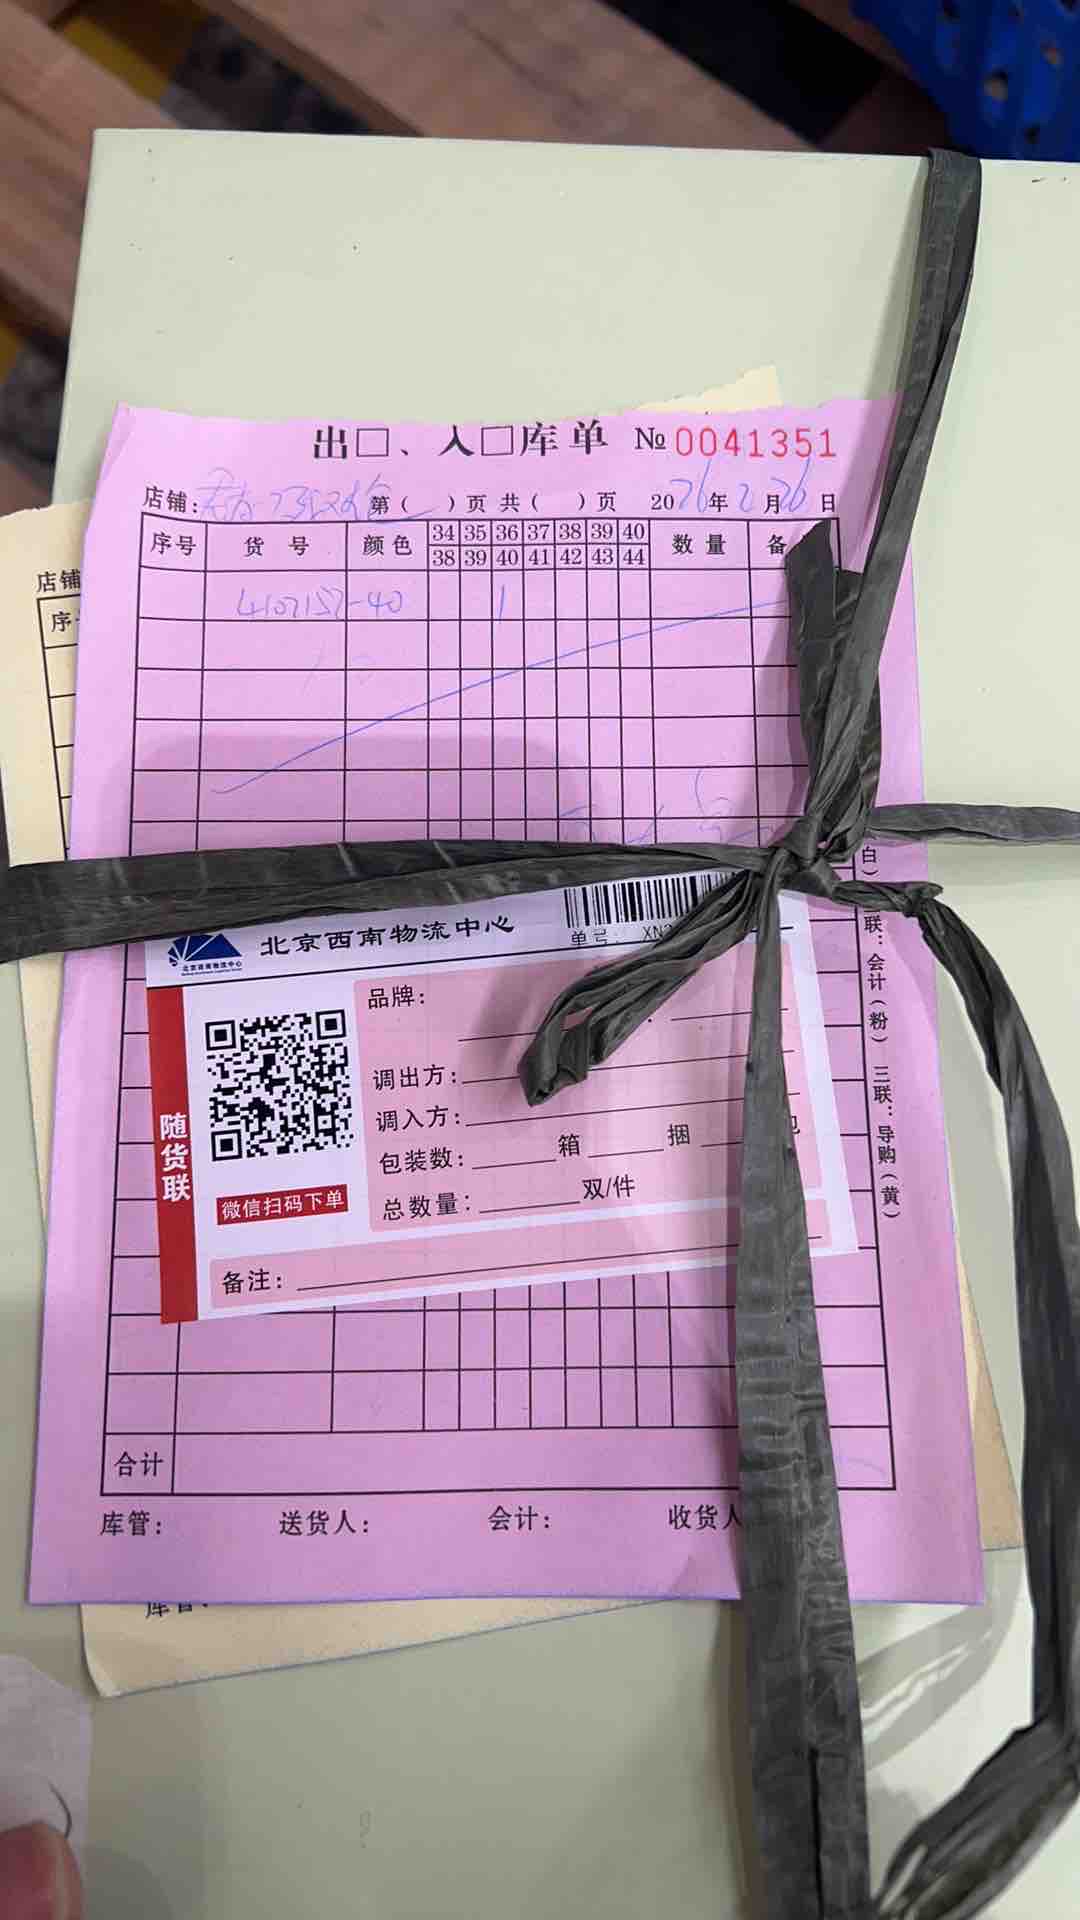 出□、入□库单 № 0041351
店铺: 第( )页 共( )页 2026年2月26日
序号 货号 颜色 34 35 36 37 38 39 40 数量 备
38 39 40 41 42 43 44
4102152-40 1
店铺
序
白)
联:会计(粉) 三联:导购(黄)
北京西南物流中心
北京西南物流中心
单号: XN
随货联
微信扫码下单
品牌:
调出方:
调入方:
包装数: 箱 捆
总数量: 双/件
备注:
合计
库管: 送货人: 会计: 收货人
库管: